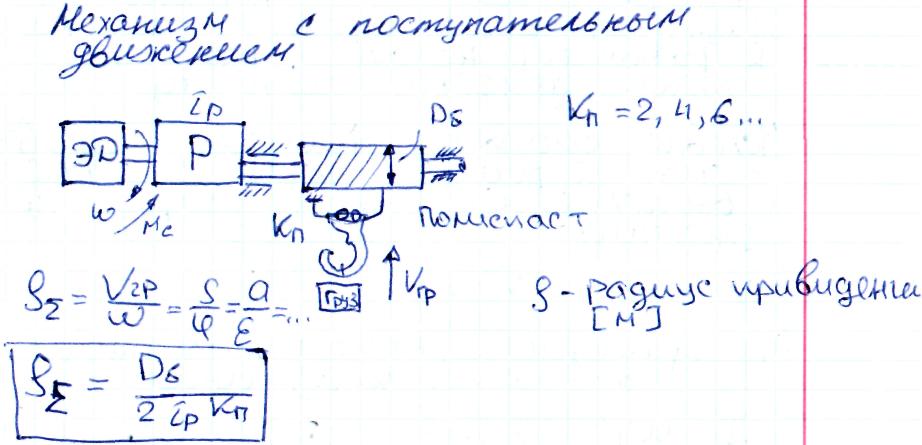 Механизм с поступательным
движением
iр
Dб
Kп = 2, 4, 6...
ЭД
Р
ω
Mc
Kп
полиспаст
груз
Vгр
ρΣ = Vгр/ω = S/φ = a/ε = ...
ρ - радиус привидения
[м]
ρΣ = Dб/(2 iр Kп)